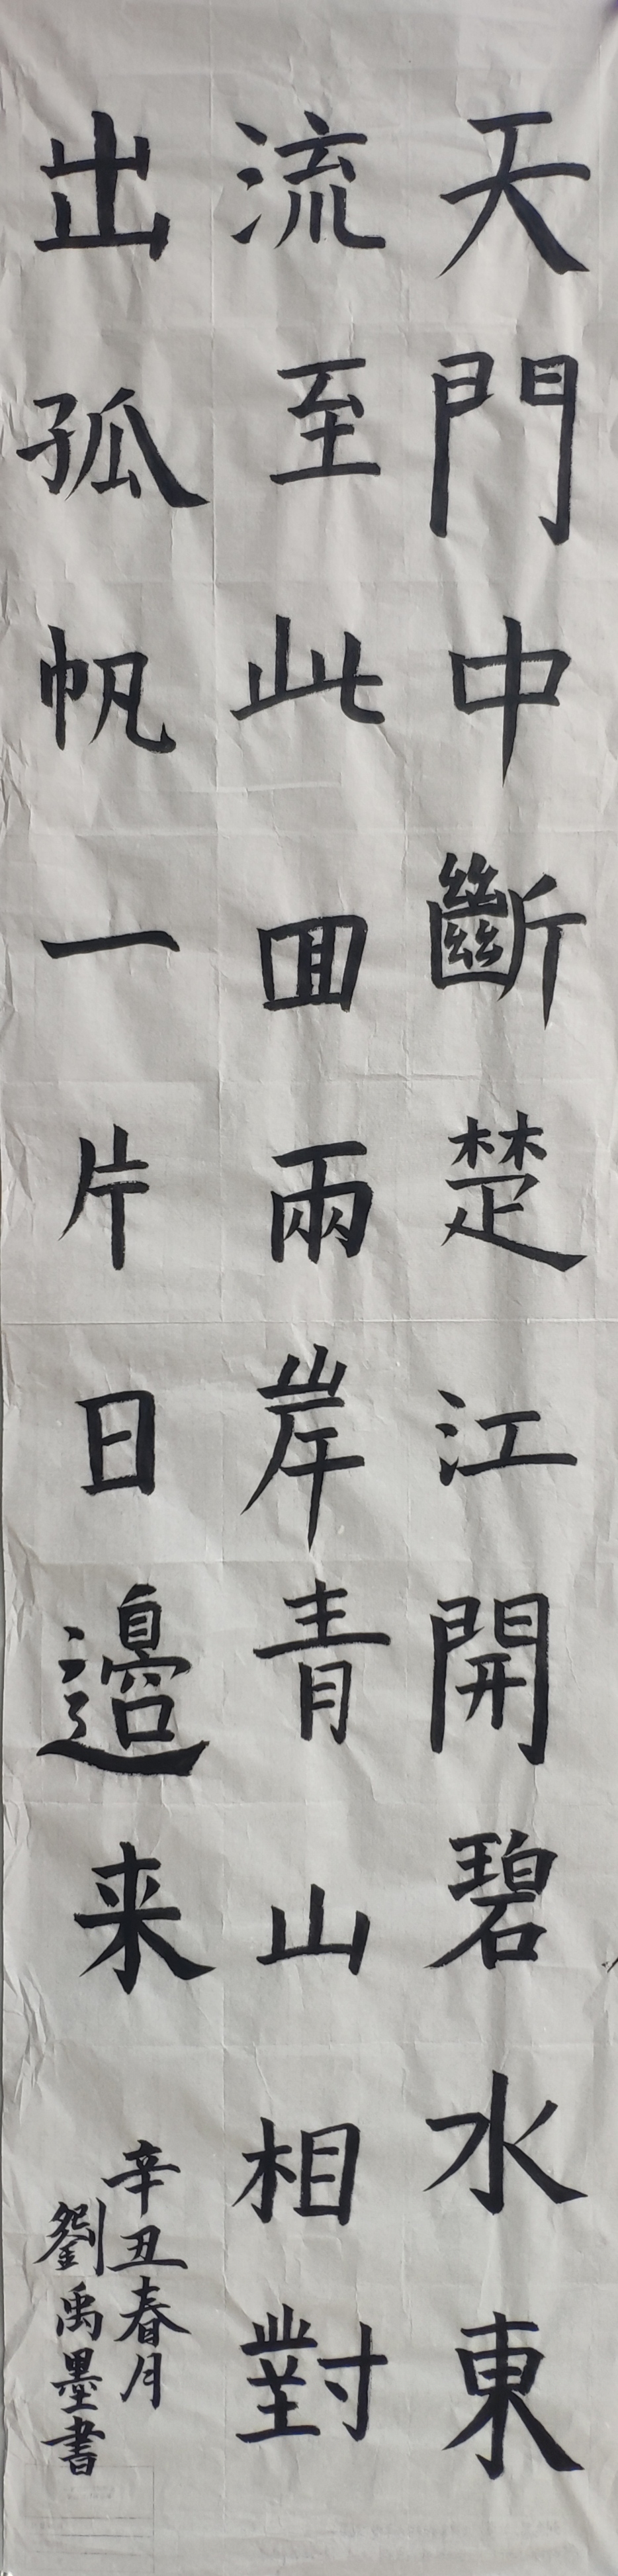 天門中斷楚江開碧水東
流至此囬兩岸青山相對
出孤帆一片日邊来
辛丑春月
劉禹墨書